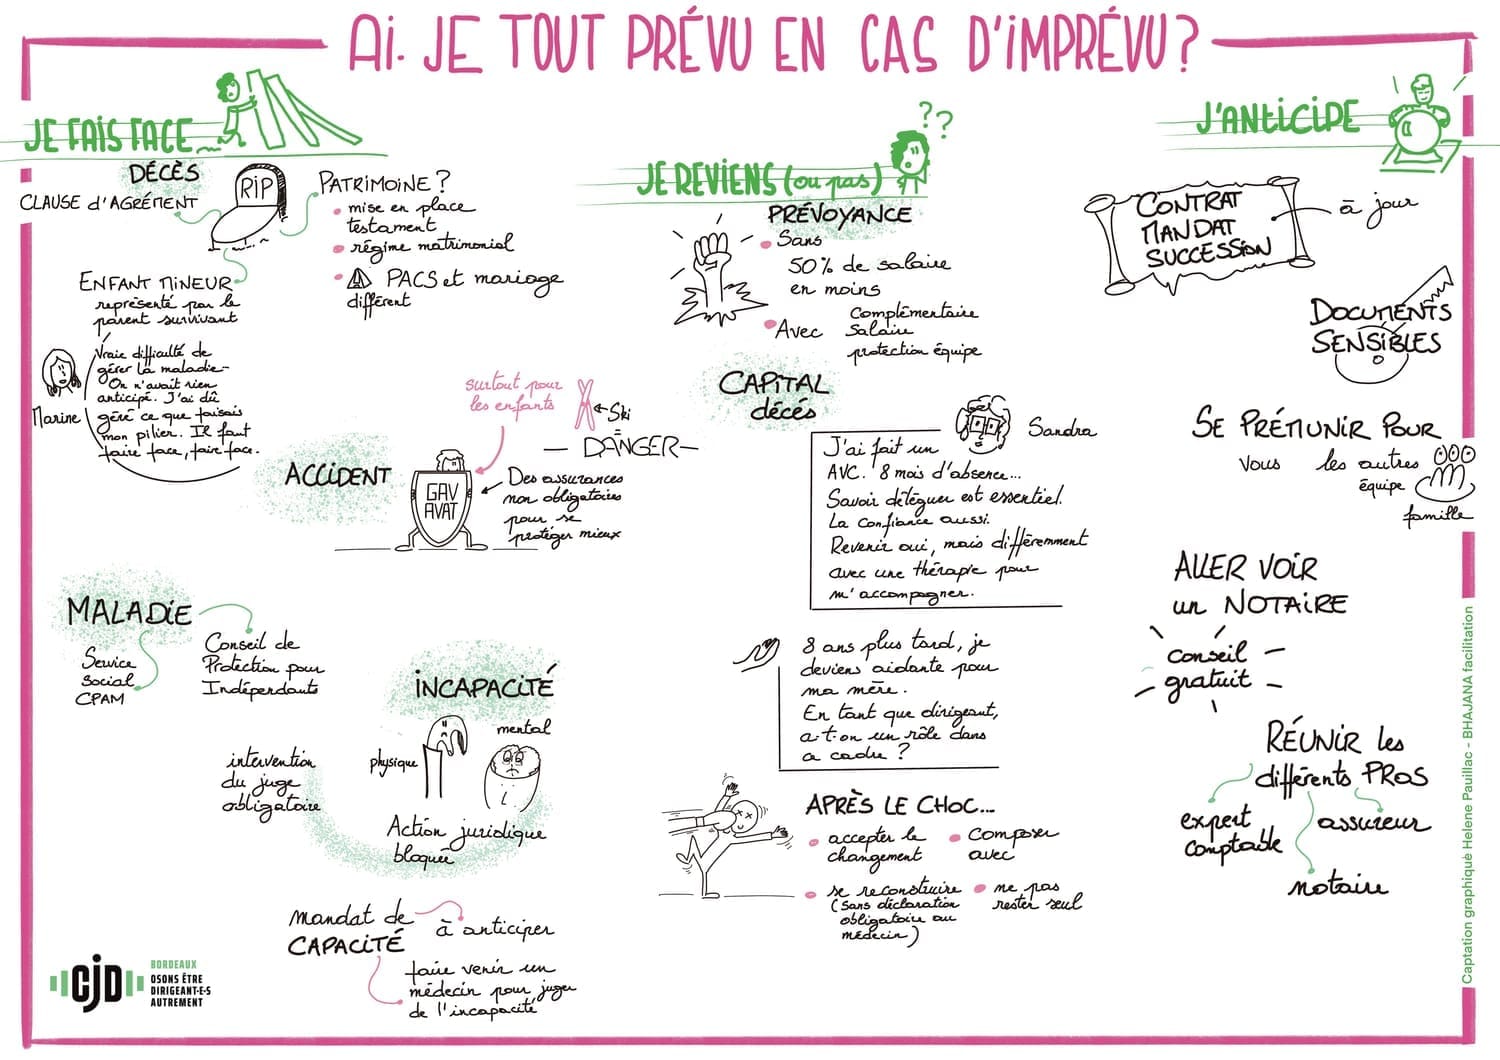 Ai-JE TOUT PRÉVU EN CAS D'iMPRÉVU?
JE FAIS FACE
DÉCÈS
CLAUSE d'AGRÉMENT
RIP
PATRIMOINE?
mise en place
testament
régime matrimonial
PACS et mariage
différent
ENFANT MINEUR
représenté par le
parent survivant
Marine
Vraie difficulté de
gérer la maladie-
On n'avait rien
anticipé. J'ai dû
géré ce que faisais
mon pilier. Il faut
faire face, faire face.
ACCIDENT
GAV
AVAT
surtout pour
les enfants
Ski
DANGER
Des assurances
non obligatoires
pour se
protéger mieux
MALADIE
Service
Social
CPAM
Conseil de
Protection pour
Indépendants
INCAPACITÉ
physique
mental
intervention
du juge
obligatoire
Action juridique
bloquée
mandat de
CAPACITÉ
à anticiper
faire venir un
médecin pour juger
de l'incapacité
JE REVIENS (ou pas)
??
PRÉVOYANCE
Sans
50% de salaire
en moins
Avec
Complémentaire
Salaire
protection équipe
CAPITAL
décés
Sandra
J'ai fait un
AVC. 8 mois d'absence...
Savoir déléguer est essentiel.
La confiance aussi.
Revenir oui, mais différemment
avec une thérapie pour
m'accompagner.
8 ans plus tard, je
deviens aidante pour
ma mère.
En tant que dirigeant,
a-t-on un rôle dans
ce cadre?
APRÈS LE CHOC...
accepter le
changement
Composer
avec
se reconstruire
(sans déclaration
obligatoire au
médecin)
ne pas
rester seul
J'ANTICIPE
CONTRAT
MANDAT
SUCCESSION
à jour
DOCUMENTS
SENSIBLES
SE PRÉMUNIR POUR
Vous
les autres
équipe
famille
ALLER VOIR
un NOTAIRE
conseil
gratuit
RÉUNIR les
différents PROS
expert
comptable
assureur
notaire
CJD
BORDEAUX
OSONS ÊTRE
DIRIGEANT·E·S
AUTREMENT
Captation graphique Helene Pauillac - BHAJANA facilitation